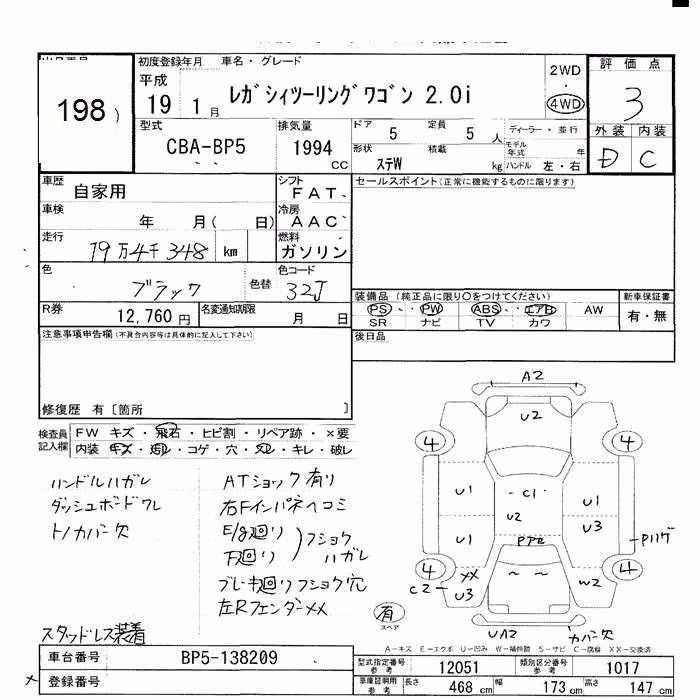 198
初度登録年月 車名・グレード
平成 19 1月
レガシィツーリングワゴン 2.0i
2WD
4WD
評価点
3
外装 内装
D C
型式
CBA-BP5
排気量
1994 CC
ドア 5 定員 5 人
形状 ステW 積載 kg
ディーラー・並行
モデル年式 年
ハンドル 左・右
車歴 自家用
シフト FAT
セールスポイント(正常に機能するものに限ります)
車検 年 月( 日)
冷房 AAC
走行 19万4千348 km
燃料 ガソリン
色 ブラック 色替
色コード 32J
装備品 (純正品に限り○をつけてください)
新車保証書
PS・PW ABS・エアB AW
SR ナビ TV カワ
有・無
R券 12,760 円
名変通知期限 月 日
注意事項申告欄(不具合内容等は具体的に記入して下さい)
後日品
修復歴 有〔箇所 〕
検査員記入欄
FW キズ・飛石・ヒビ割・リペア跡・×要
内装・キズ・汚レ・コゲ・穴・スレ・キレ・破レ
ハンドルハガレ
ダッシュボードワレ
トノカバー欠
ATショック有り
右Fインパネヘコミ
E/g廻り
下廻り
フショクハガレ
ブレーキ廻りフショク穴
左Rフェンダー××
スタッドレス装着
A2
U2
4 4
U1 C1 U1
U2
U1 U3
Pハゲ
4 4
C2 ×× U3
W2
有
スペア
UA2 カバー欠
A－キズ E－エクボ U－凹み W－補修跡 S－サビ C－腐食 ××－交換済
車台番号 BP5-138209
登録番号
型式指定番号 参考 12051
類別区分番号 参考 1017
車庫証明用 参考 長さ 468 cm 幅 173 cm 高さ 147 cm